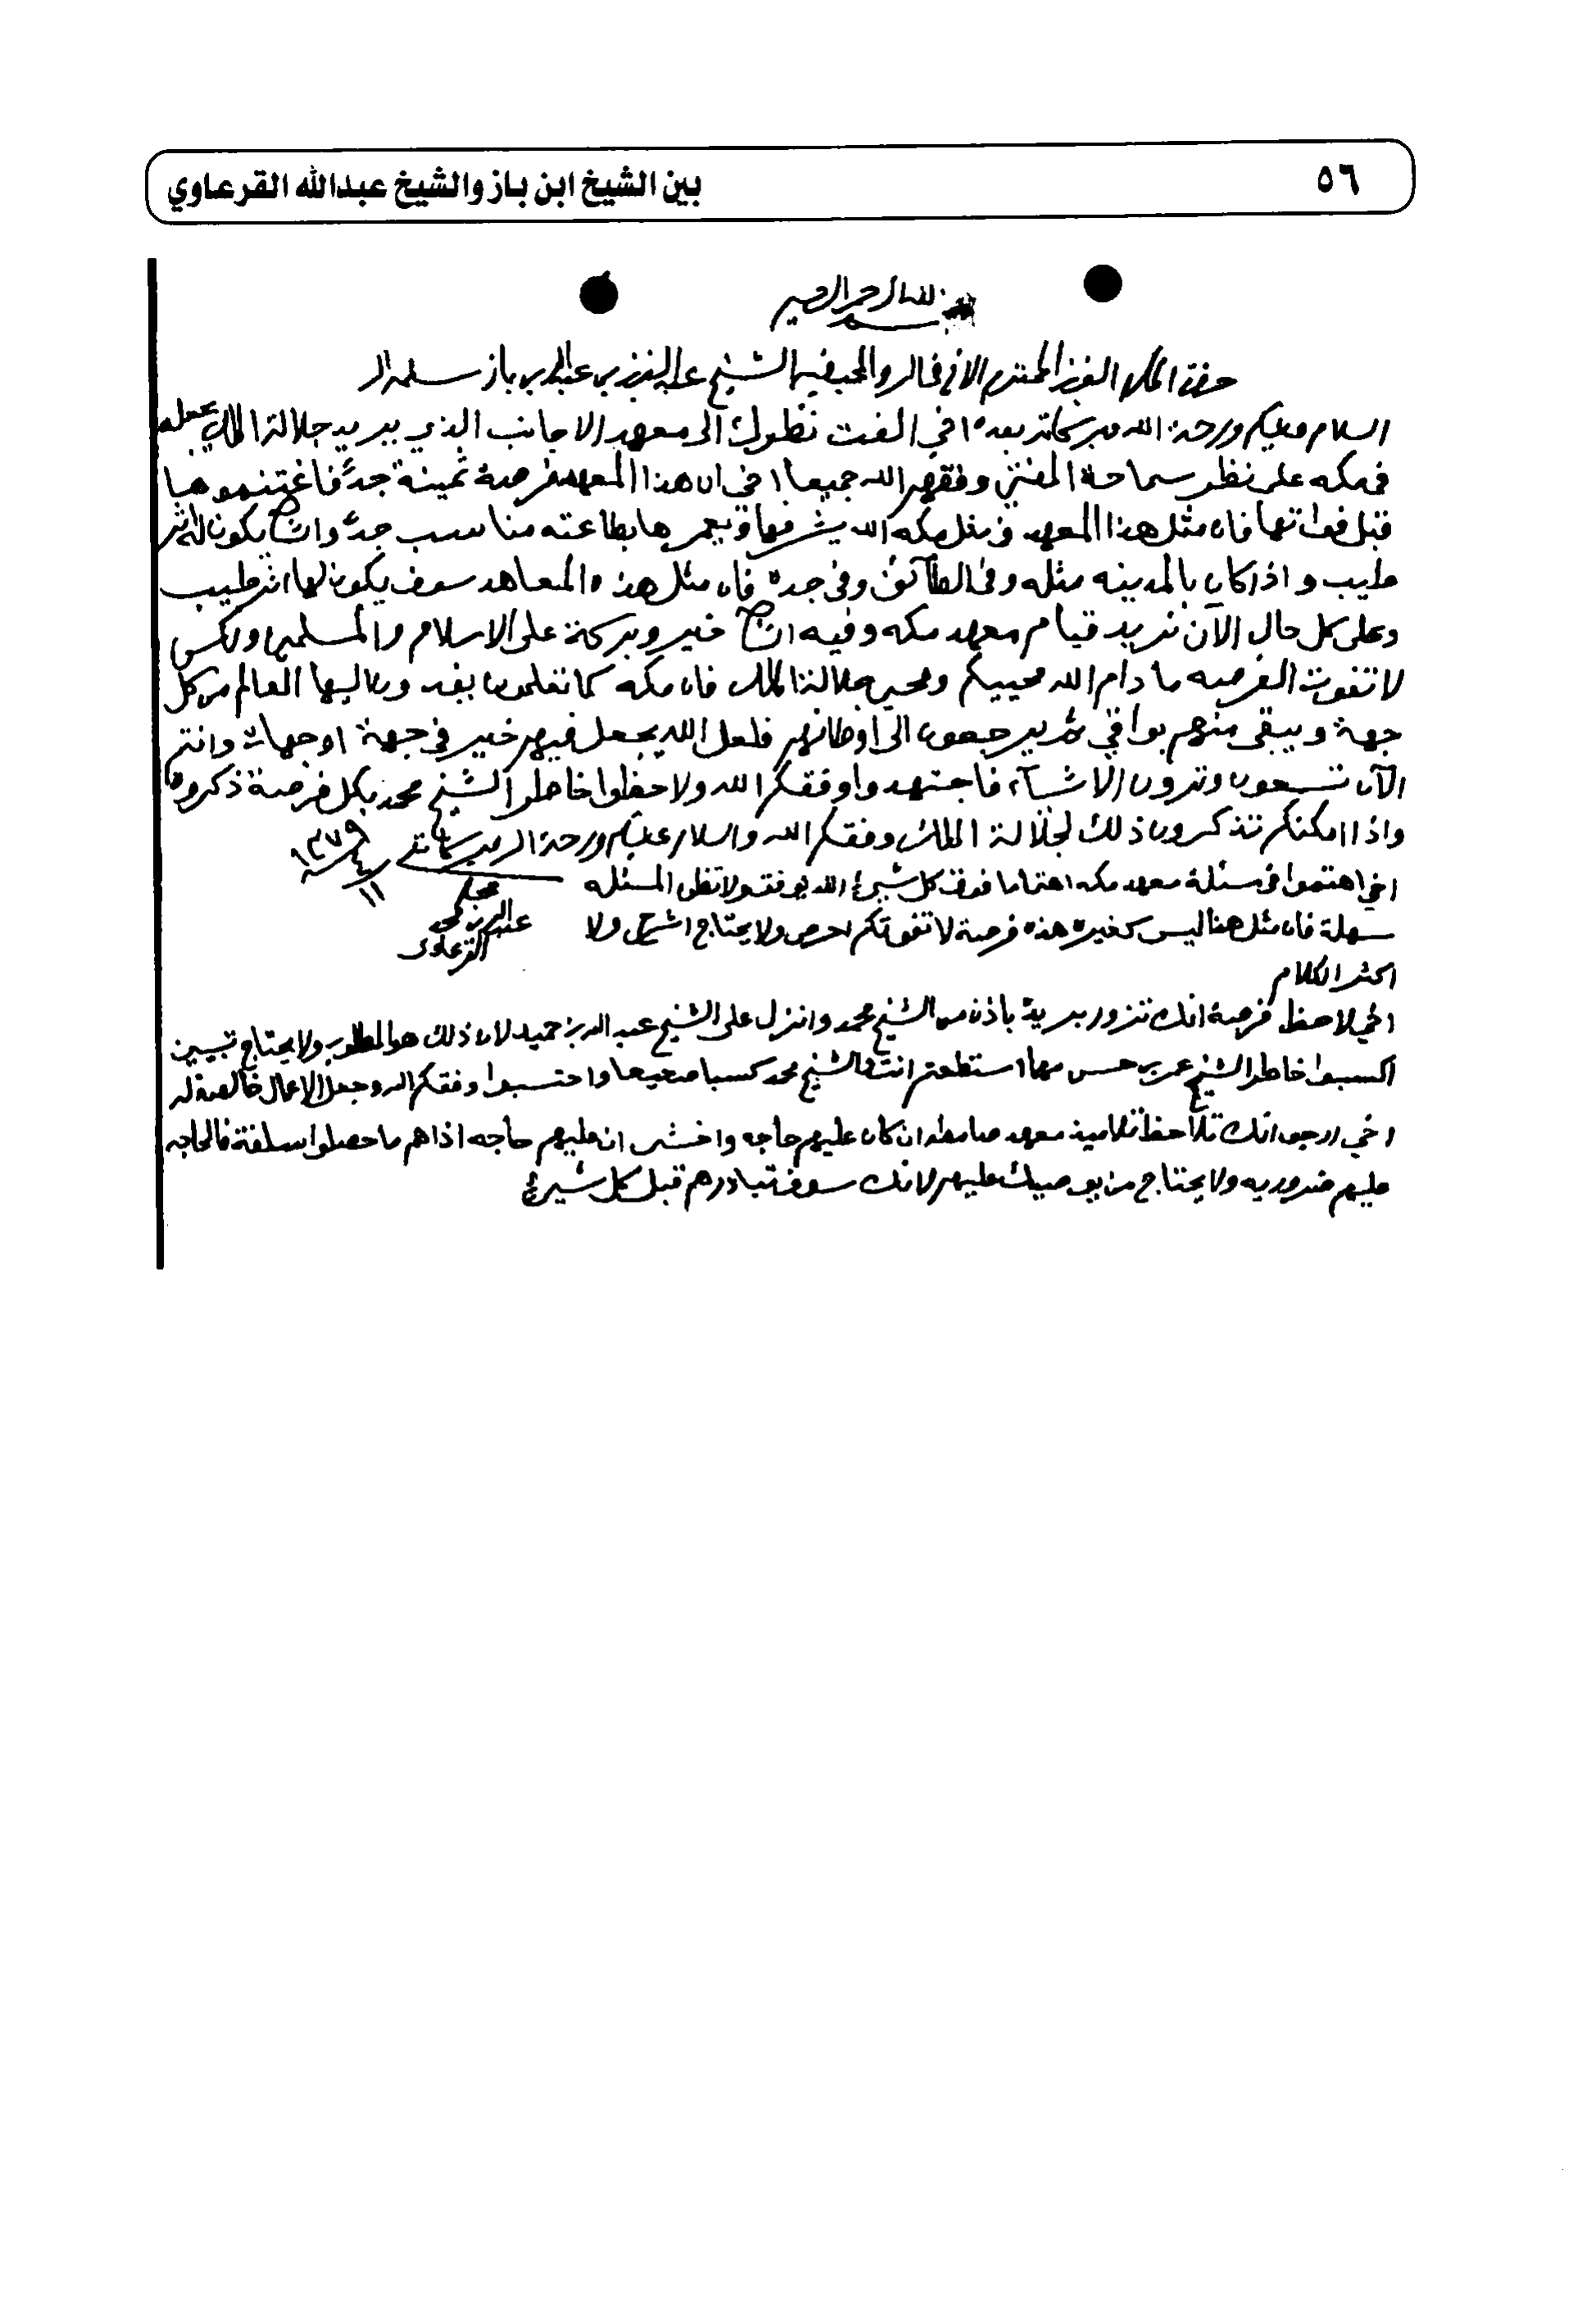 ٥٦
بين الشيخ ابن باز والشيخ عبدالله القرعاوي
بسم الله الرحمن الرحيم
حضرة المكرم العزيز المحترم الاخ في الله والمحب فيه الشيخ عبدالعزيز بن عبدالله بن باز سلمه الله
السلام عليكم ورحمة الله وبركاته بعده اخي الفت نظرك الى معهد الاجانب الذي يريد جلالة الملك يجعله
في مكه على نظر سماحة المفتي وفقهم الله جميعا اخي ان هذا المعهد فرصة ثمينة جدًّا فاغتنموها
قبل فواتها فان مثل هذا المعهد في مثل مكه الله يشرفها ويعمرها بطاعته مناسب جدًّا وان شاء الله يكون له اثر
طيب و اذا كان بالمدينه مثله وفي الطآئف وفي جده فان مثل هذه المعاهد سوف يكون لها اثر طيب
وعلى كل حال الآن نريد قيام معهد مكه وفيه ان شاء الله خير وبركة على الاسلام والمسلمين ولكن
لا تفوت الفرصه ما دام الله محييكم ومحيي جلالة الملك فان مكه كما تعلمون يفد اليها العالم من كل
جهة و يبقى منهم بواقي ثم يرجعون الى اوطانهم فلعل الله يجعل فيهم خير في جهة او جهات وانتم
الآن تسمعون وترون الاشيآء فاجتهدوا وفقكم الله ولاحظوا خاطر الشيخ محمد بكل فرصة ذكروه
واذا امكنكم تذكرون ذلك لجلالة الملك وفقكم الله والسلام عليكم ورحمة الله وبركاته ١١/٤/١٣٧٩
اخي اهتموا في مسئلة معهد مكه اهتماما فوق كل شيئ الله يوفقكم ولا تظن المسئله
محبكم
سهلة فان مثل هذا ليس كغيره هذه فرصة لا تفوتكم احرص ولا يحتاج اشرح ولا
عبدالله بن محمد
القرعاوي
اكثر الكلام
اخي لاحظ فرصة انك تزور بريدة باذن من الشيخ محمد وانزل على الشيخ عبد الله بن حميد لان ذلك هو المطلوب ولا يحتاج تبيين
اكسبوا خاطر الشيخ عمر بن حسن مهما استطعتم انت والشيخ محمد كسبا صحيحا واحتسبوا وفقكم الله وجعل الاعمال خالصة له
اخي ارجو انك تلاحظ تلاميذ معهد صامطه ان كان عليهم حاجه واخشى ان عليهم حاجه اذا هم ما حصلوا سلفة فالحاجه
عليهم ضروريه ولا يحتاج من يوصيك عليهم لانك سوف تبادرهم قبل كل شيئ